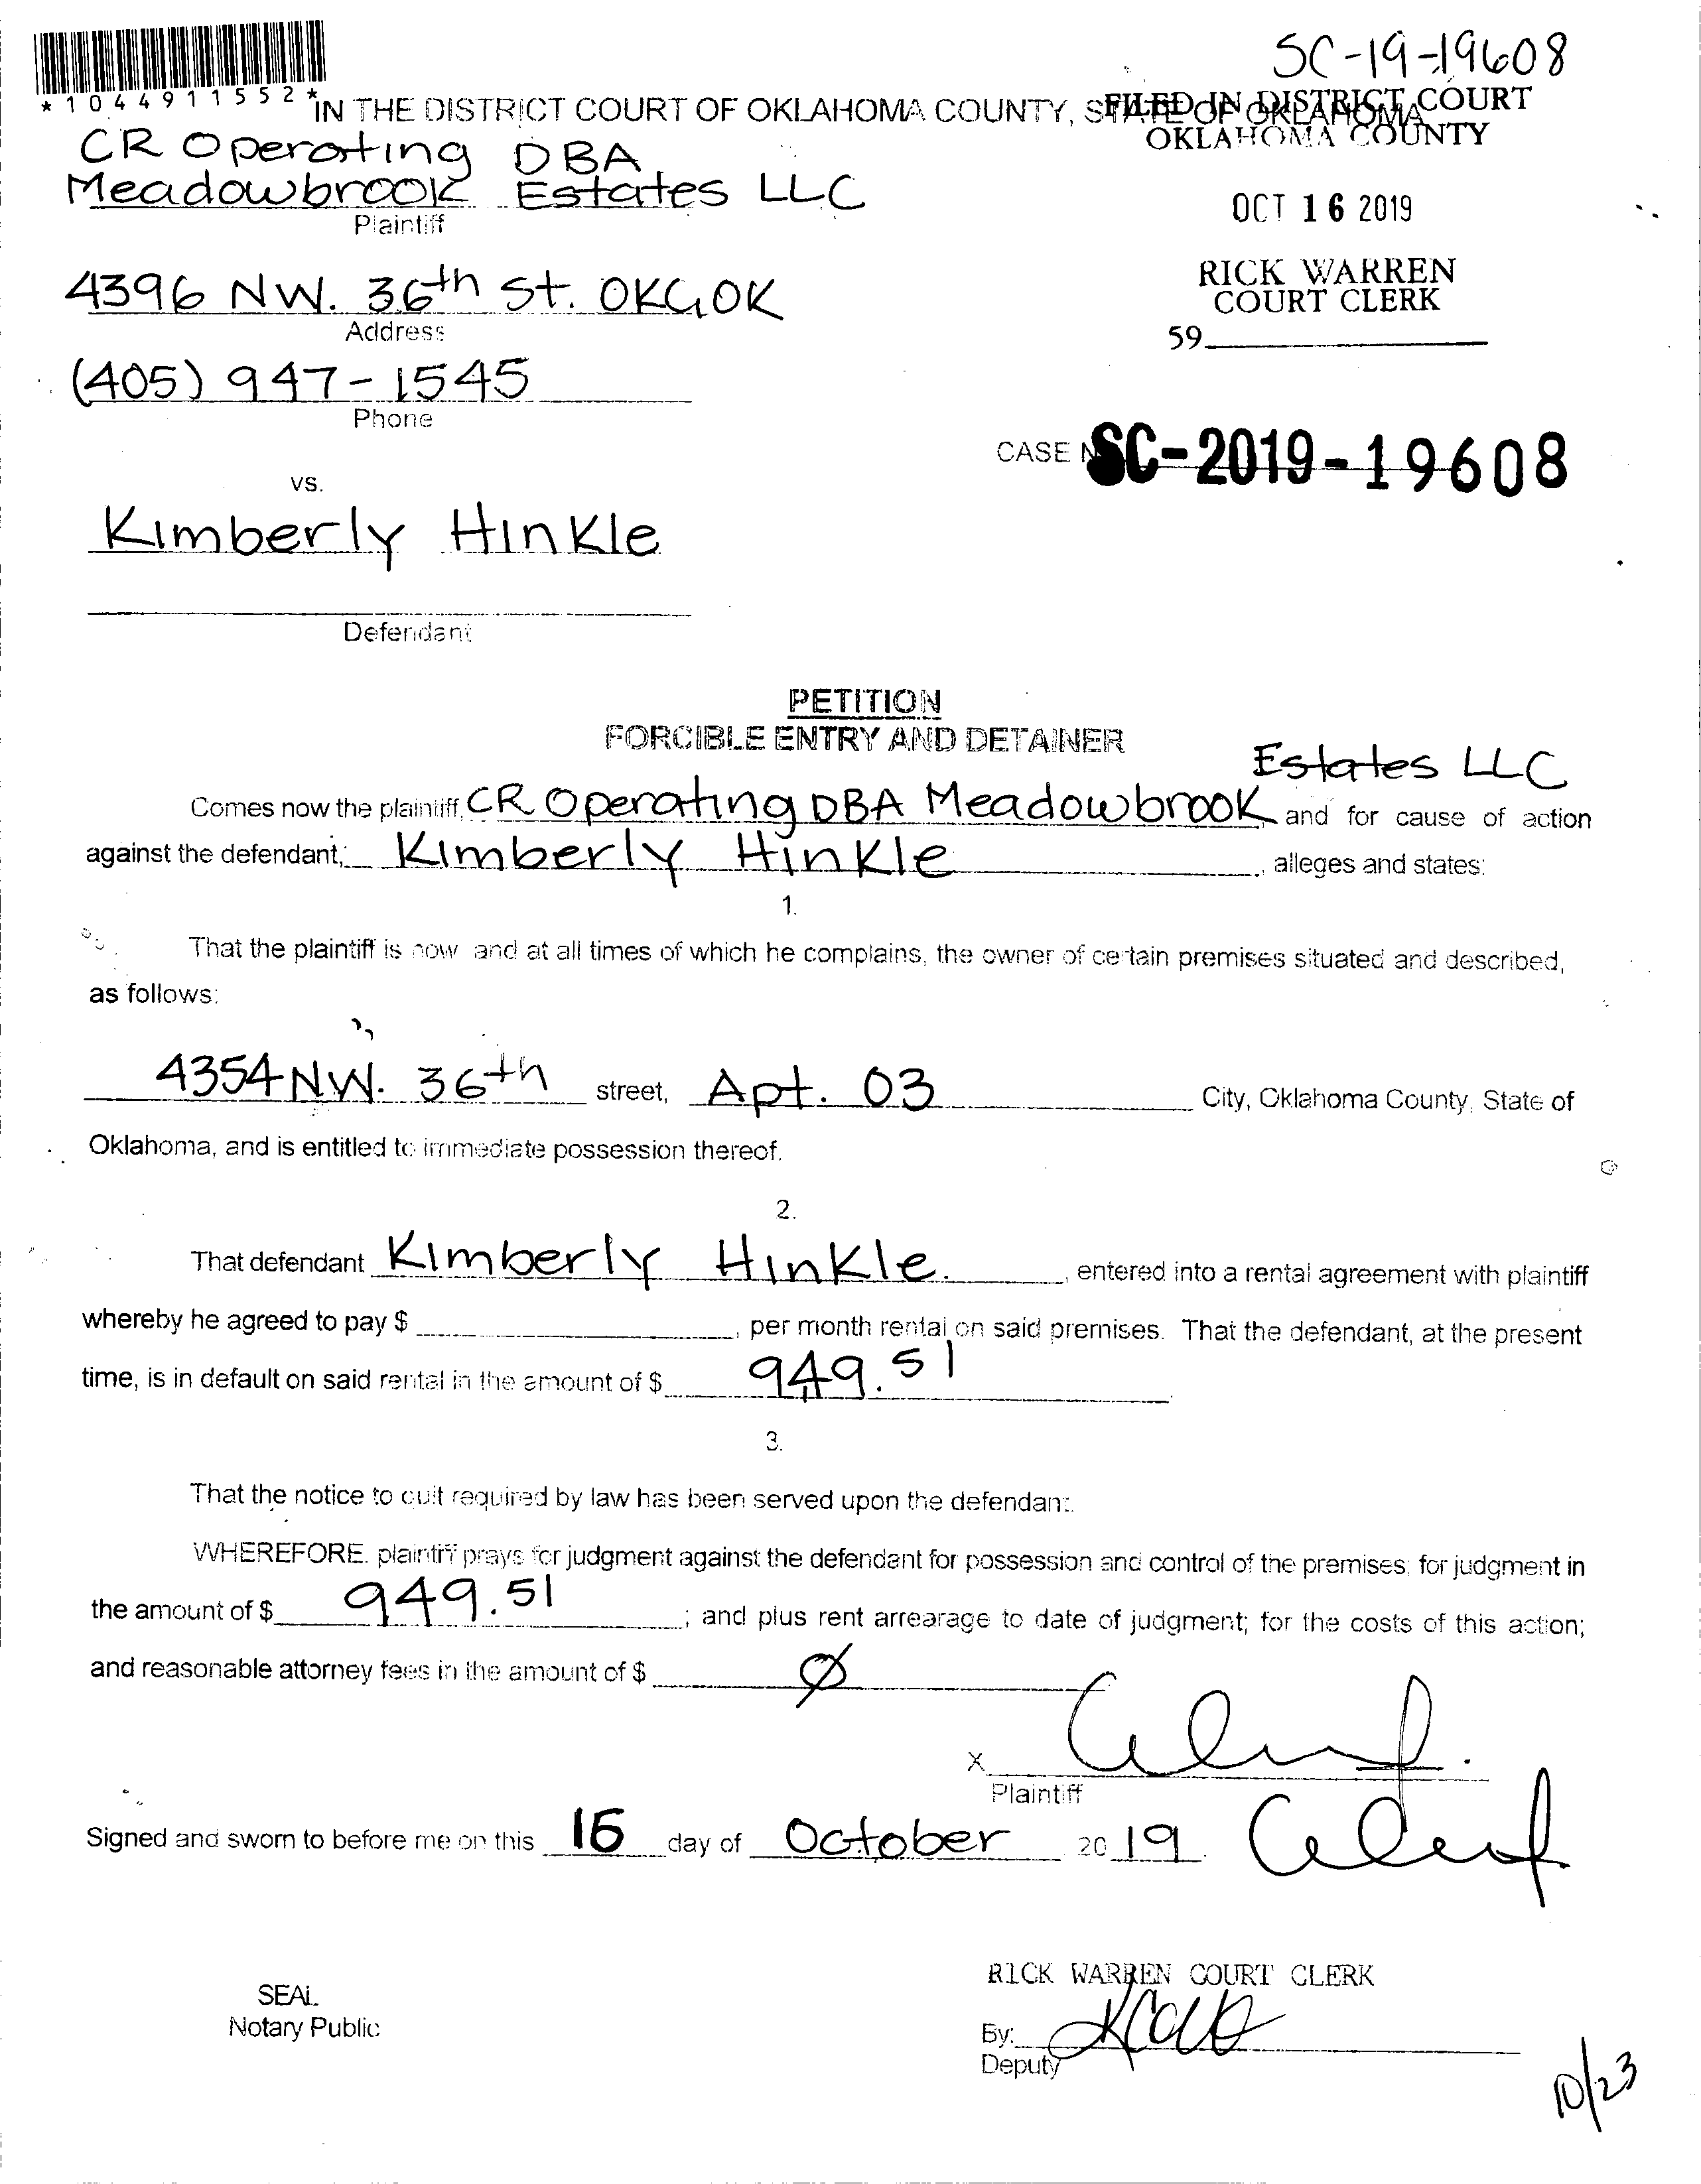 SC-19-19608
*1044911552*
IN THE DISTRICT COURT OF OKLAHOMA COUNTY, STATE OF OKLAHOMA
FILED IN DISTRICT COURT
OKLAHOMA COUNTY
CR Operating DBA
Meadowbrook Estates LLC
Plaintiff
OCT 16 2019
4396 NW. 36th St. OKC, OK
Address
RICK WARREN
COURT CLERK
59
(405) 947-1545
Phone
CASE
SC-2019-19608
vs.
Kimberly Hinkle
Defendant
PETITION
FORCIBLE ENTRY AND DETAINER
Estates LLC
Comes now the plaintiff, CR Operating DBA Meadowbrook, and for cause of action
against the defendant, Kimberly Hinkle, alleges and states:
1.
That the plaintiff is now and at all times of which he complains, the owner of certain premises situated and described,
as follows:
4354 NW. 36th street, Apt. 03 City, Oklahoma County, State of
Oklahoma, and is entitled to immediate possession thereof.
2.
That defendant Kimberly Hinkle, entered into a rental agreement with plaintiff
whereby he agreed to pay $, per month rental on said premises. That the defendant, at the present
time, is in default on said rental in the amount of $ 949.51.
3.
That the notice to quit required by law has been served upon the defendant.
WHEREFORE, plaintiff prays for judgment against the defendant for possession and control of the premises; for judgment in
the amount of $ 949.51; and plus rent arrearage to date of judgment; for the costs of this action;
and reasonable attorney fees in the amount of $ Ø
X
Plaintiff
Signed and sworn to before me on this 16 day of October 2019.
RICK WARREN COURT CLERK
SEAL
Notary Public
By:
Deputy
10/23